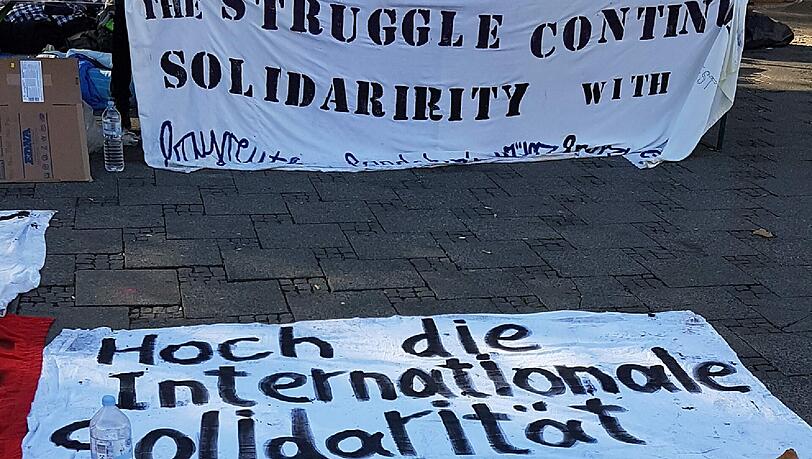 THE STRUGGLE CONTINU
SOLIDARIRITY WITH
Hoch die
Internationale
Solidarität